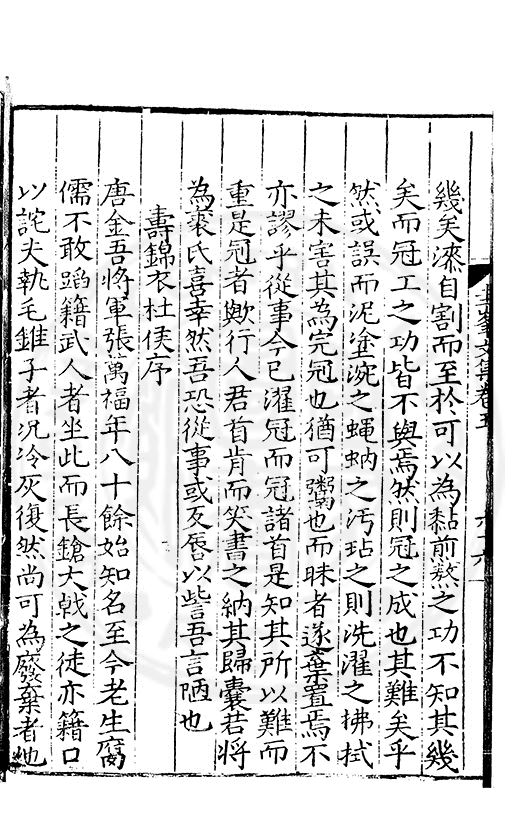 幾矣漆自割而至於可以為黏前熬之功不知其幾
矣而冠工之功皆不與焉然則冠之成也其難矣乎
然或誤而泥塗涴之蠅蚋之汚玷之則洗濯之拂拭
之未害其為完冠也猶可鬻也而昧者遂棄置焉不
亦謬乎從事今已濯冠而冠諸首是知其所以難而
重是冠者歟行人君首肯而笑書之納其歸囊若將
為裘氏喜幸然吾恐從事或反唇以訾吾言陋也
壽錦衣杜侯序
唐金吾將軍張萬福年八十餘始知名至今老生腐
儒不敢蹈籍武人者坐此而長鎗大戟之徒亦籍口
以詫夫執毛錐子者況冷灰復然尚可為廢棄者地
文集卷五